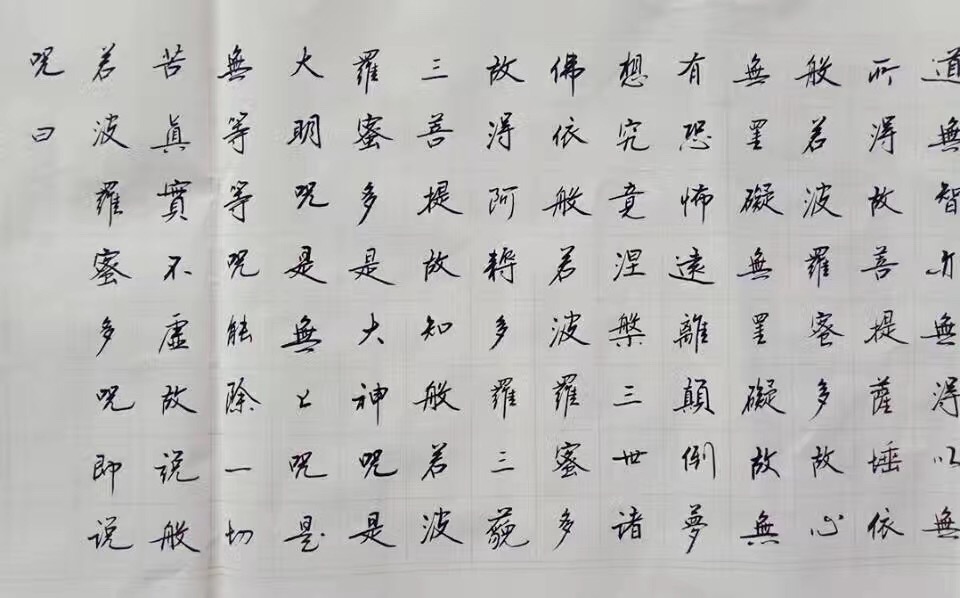 道無智亦無得以無
所得故菩提薩埵依
般若波羅蜜多故心
無罣礙無罣礙故無
有恐怖遠離顛倒夢
想究竟涅槃三世諸
佛依般若波羅蜜多
故得阿耨多羅三藐
三菩提故知般若波
羅蜜多是大神呪是
大明呪是無上呪是
無等等呪能除一切
苦眞實不虛故说般
若波羅蜜多呪即说
呪曰